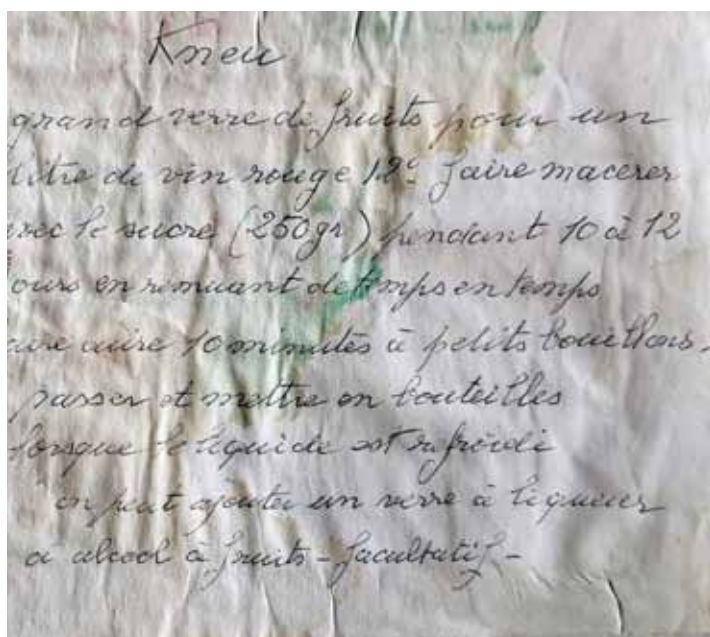 Kneu
grand verre de fruits pour un
litre de vin rouge 12° faire macerer
avec le sucre (250gr) pendant 10 à 12
ours en remuant de temps en temps
aire cuire 10 minutes à petits bouillons.
passer et mettre en bouteilles
lorsque le liquide est refroidi
on peut ajouter un verre à liqueur
d alcool à fruits - facultatif -